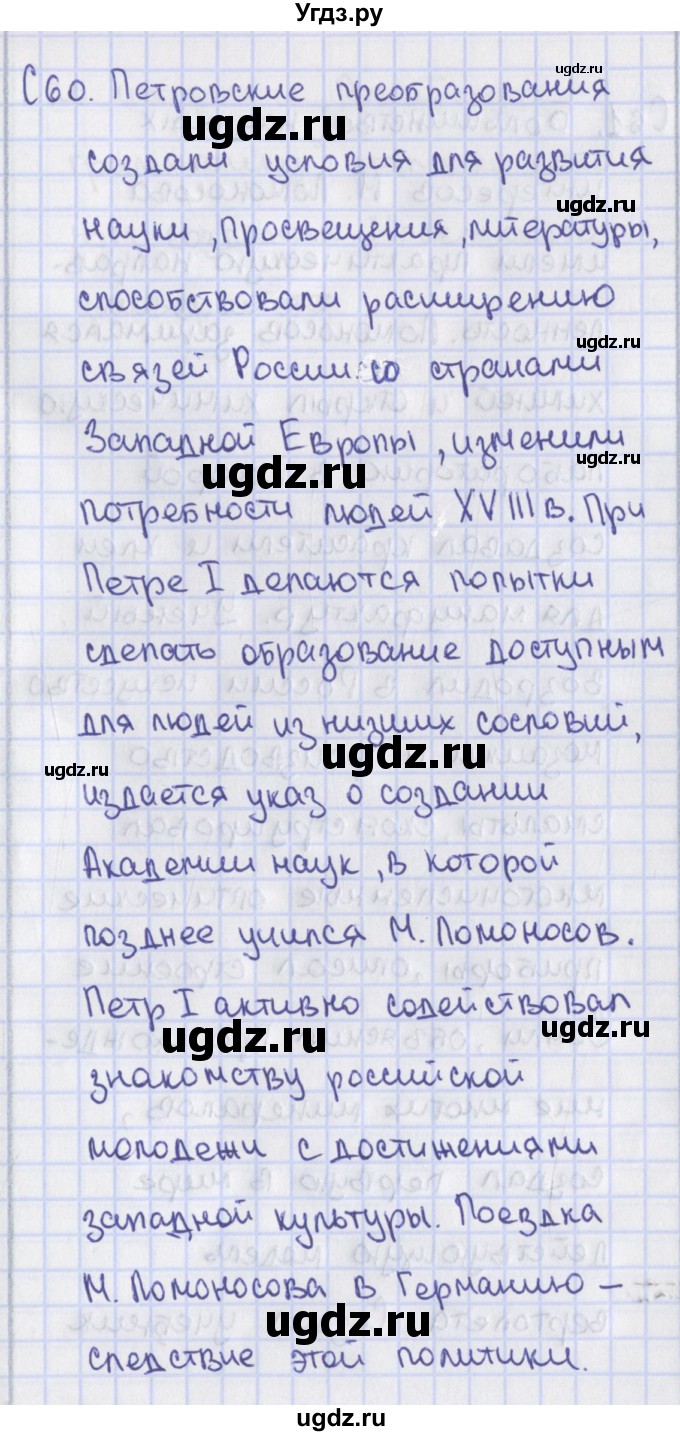 Угдз.ру
С60. Петровские преобразования
создали условия для развития
науки, просвещения, литературы,
способствовали расширению
связей России со странами
Западной Европы, изменили
потребности людей XVIII в. При
Петре I делаются попытки
сделать образование доступным
для людей из низших сословий,
издается указ о создании
Академии наук, в которой
позднее учился М. Ломоносов.
Петр I активно содействовал
знакомству российской
молодежи с достижениями
западной культуры. Поездка
М. Ломоносова в Германию –
следствие этой политики.
ugdz.ru
ugdz.ru
ugdz.ru
ugdz.ru
ugdz.ru
ugdz.ru
ugdz.ru
ugdz.ru
ugdz.ru
ugdz.ru
ugdz.ru
ugdz.ru